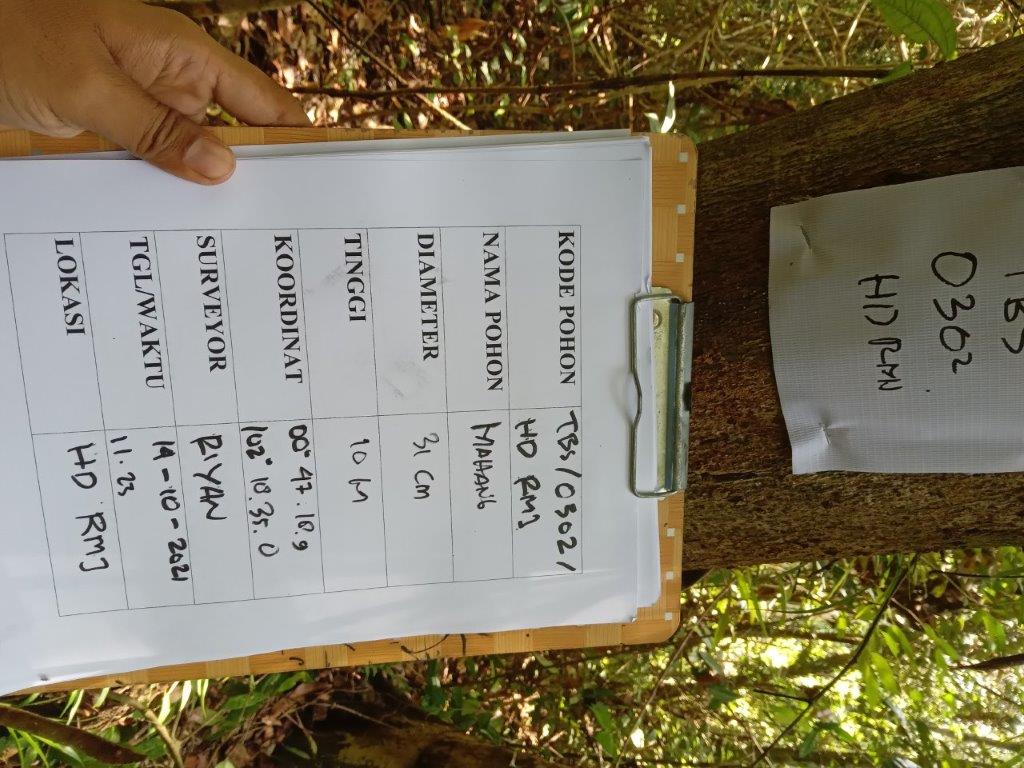 TBS
0302
HD RMN
KODE POHON TBS/0302/
HD RMJ
NAMA POHON MAHANG
DIAMETER 31 Cm
TINGGI 10 M
KOORDINAT 00° 47.18.9
102° 18.35.0
SURVEYOR RIYAN
TGL/WAKTU 14-10-2021
11.23
LOKASI HD RMJ